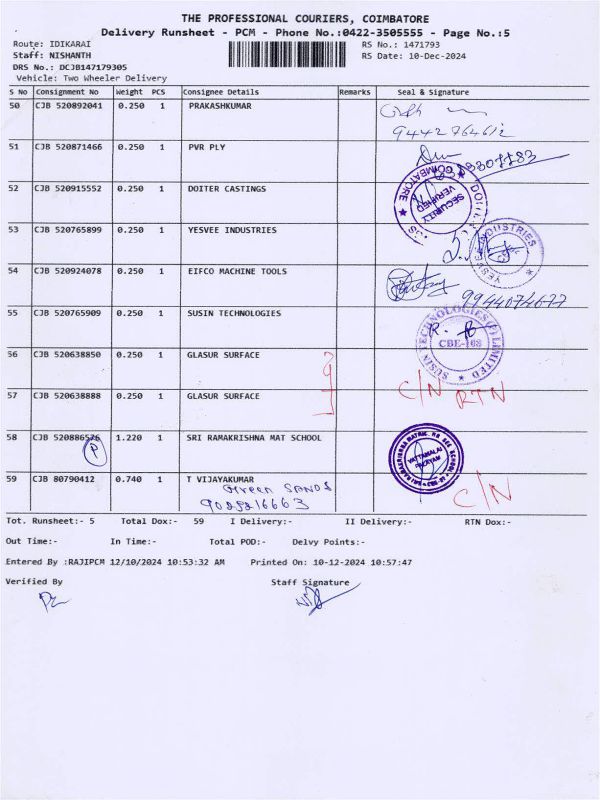 THE PROFESSIONAL COURIERS, COIMBATORE
Delivery Runsheet - PCM - Phone No.:0422-3505555 - Page No.:5
Route: IDIKARAI
RS No.: 1471793
Staff: NISHANTH
RS Date: 10-Dec-2024
DRS No.: DCJB147179305
Vehicle: Two Wheeler Delivery
S No Consignment No Weight PCS Consignee Details Remarks Seal & Signature
50 CJB 520892041 0.250 1 PRAKASHKUMAR
9442764612
51 CJB 520871466 0.250 1 PVR PLY
52 CJB 520915552 0.250 1 DOITER CASTINGS
COIMBATORE
SECURITY VERIFIED
53 CJB 520765899 0.250 1 YESVEE INDUSTRIES
54 CJB 520924078 0.250 1 EIFCO MACHINE TOOLS
9944074677
55 CJB 520765909 0.250 1 SUSIN TECHNOLOGIES
SUSIN TECHNOLOGIES (P) LIMITED
CBE-108
56 CJB 520638850 0.250 1 GLASUR SURFACE
57 CJB 520638888 0.250 1 GLASUR SURFACE
C/N RTN
58 CJB 520886576 1.220 1 SRI RAMAKRISHNA MAT SCHOOL
P
VATTAMALAI PALAYAM
59 CJB 80790412 0.740 1 T VIJAYAKUMAR
Green SANDS
C/N
Tot. Runsheet:- 5 Total Dox:- 59 I Delivery:- II Delivery:- RTN Dox:-
Out Time:- In Time:- Total POD:- Delvy Points:-
Entered By :RAJIPCM 12/10/2024 10:53:32 AM Printed On: 10-12-2024 10:57:47
Verified By Staff Signature